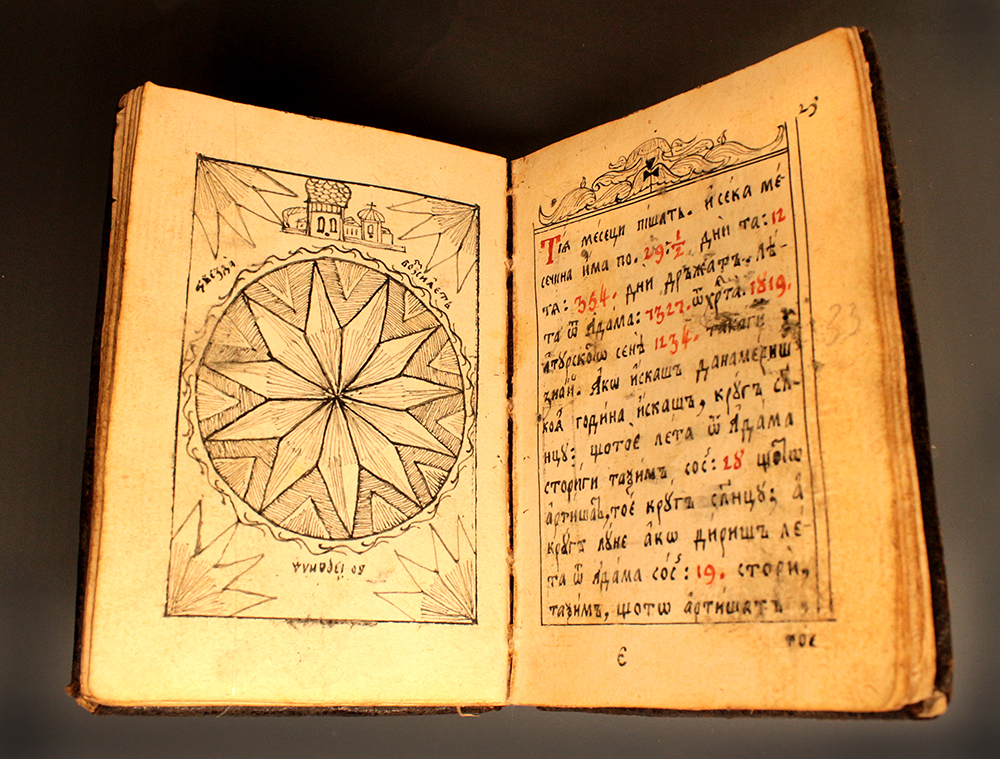 ѕвезда
возидетъ
во їзраила
23
Тїѧ мѐсеци пишатъ. и҆ се́ка ме́-
сечина и҆ма по. 29: ½ дни та: 12
та: 354. дни дръжатъ. Лѣ-
та ѿ А҆дама: 7327. ѿ хр҃та. 1819.
а҆ турскѡ сене 1234. така ги
знай. А҆кѡ и҆скашъ да намериш
коѧ̀ година и҆скашъ, крꙋгъ сл҃-
нцꙋ: щотоѐ лета ѿ А҆дама
стори ги тазимъ сос: 28 щотѡ
а҆ртишатъ, тоѐ крꙋгъ сл҃нцꙋ; а҆
крꙋгъ лꙋне а҆кѡ дириш ле́-
та ѿ А҆дама сос: 19. стори,
тазимъ, щотѡ а҆ртишатъ,
тое
є
23